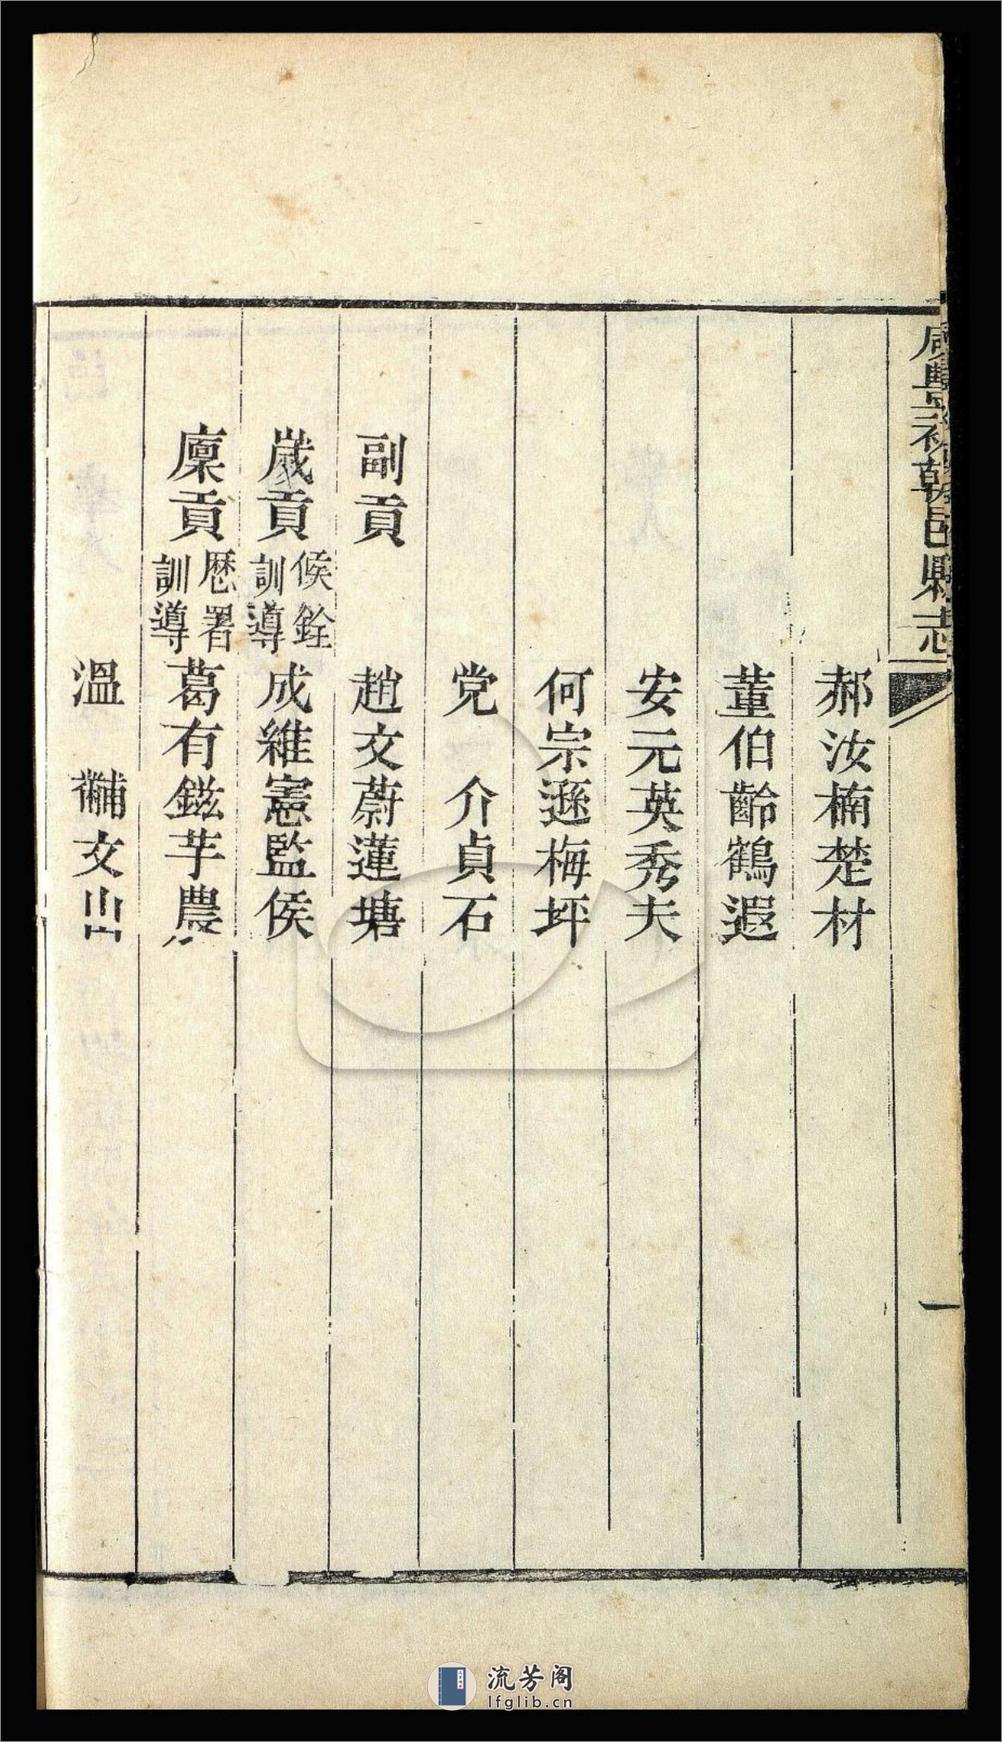 咸豐初朝邑縣志
一
郝汝楠楚材
董伯齡鶴遐
安元英秀夫
何宗遜梅坪
党介貞石
副貢 趙文蔚蓮塘
歲貢 候銓訓導 成維憲監侯
廩貢 歷署訓導 葛有鎡芋農
溫黼文山
流芳阁
lfglib.cn